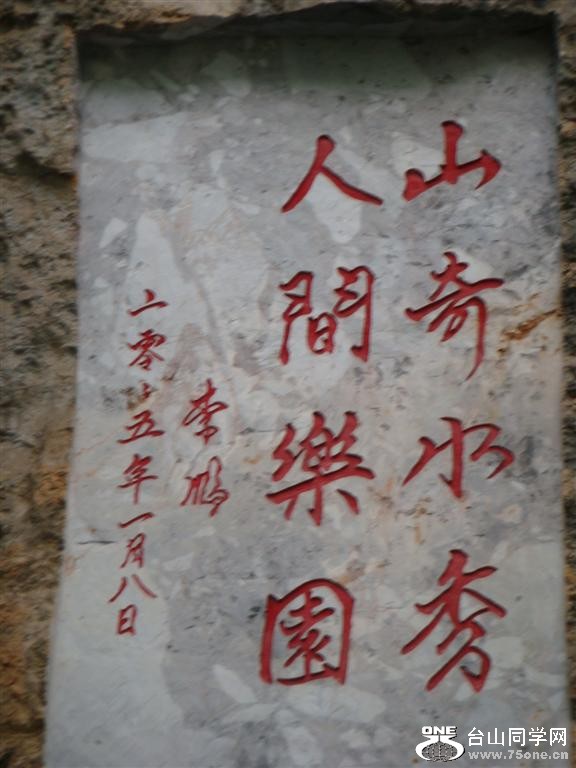 山奇水秀
人間樂園
李鹏
二零十五年一月八日
ONE
台山同学网
www.75one.cn